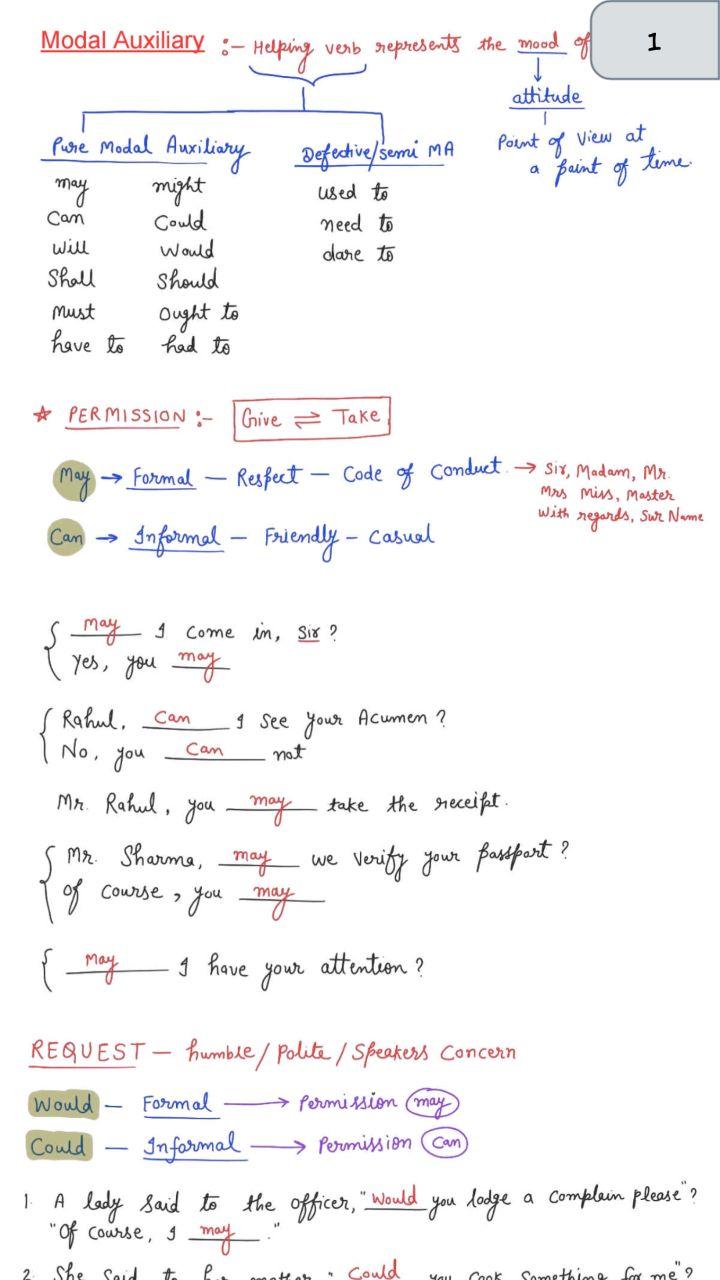 Modal Auxiliary :- Helping verb represents the mood of
1
attitude
Point of View at
a point of time.
Pure Modal Auxiliary
Defective/semi MA
may might
used to
Can Could
need to
will Would
dare to
Shall Should
Must Ought to
have to had to
☆ PERMISSION :- Give ⇌ Take
May → Formal — Respect — Code of Conduct. → Sir, Madam, Mr.
Mrs Miss, Master
With regards, Sur Name
Can → Informal — Friendly - Casual
May I Come in, Sir ?
Yes, you may
Rahul, Can I See your Acumen ?
No, you Can not
Mr. Rahul, you may take the receipt.
Mr. Sharma, may we verify your passport ?
of course, you may
May I have your attention ?
REQUEST — humble/Polite/Speakers Concern
Would — Formal → Permission may
Could — Informal → Permission Can
1. A lady Said to the officer, "Would you lodge a Complain please"?
"Of Course, I may."
2. She Said to her mother "Could you Cook Something for me"?